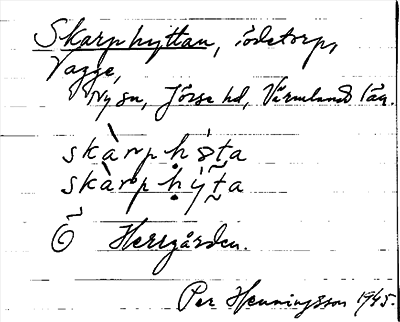 Skarphyttan, ödetorp,
Vagge,
Ny sn, Jösse hd, Värmlands län.
skàrpḥȣ́t̰a
skàrpḥýt̰a
Herrgården.
Per Henningsson 1945.